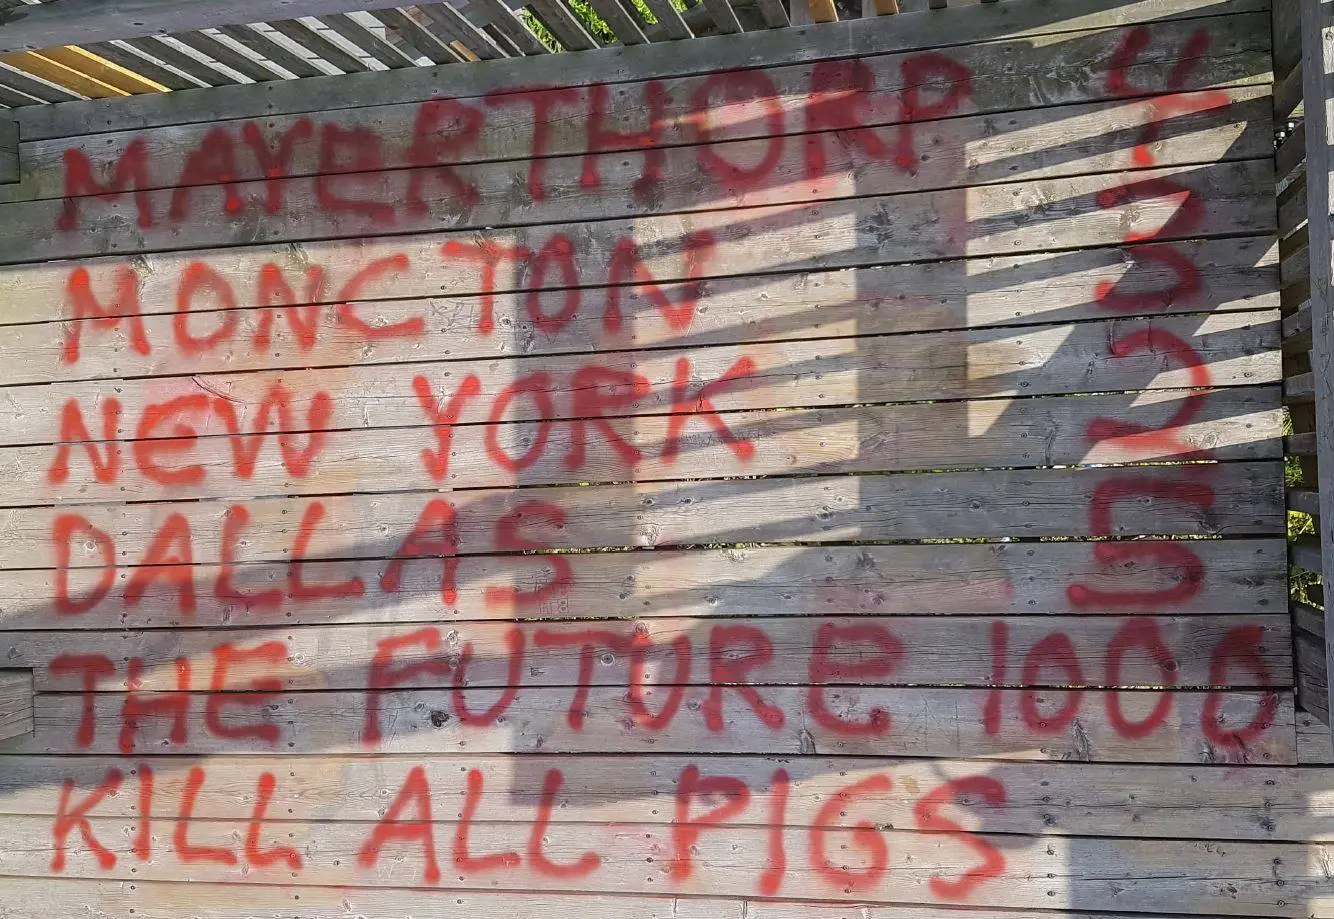 MAYERTHORP 4
MONCTON 3
NEW YORK 2
DALLAS 5
THE FUTURE 1000
KILL ALL PIGS